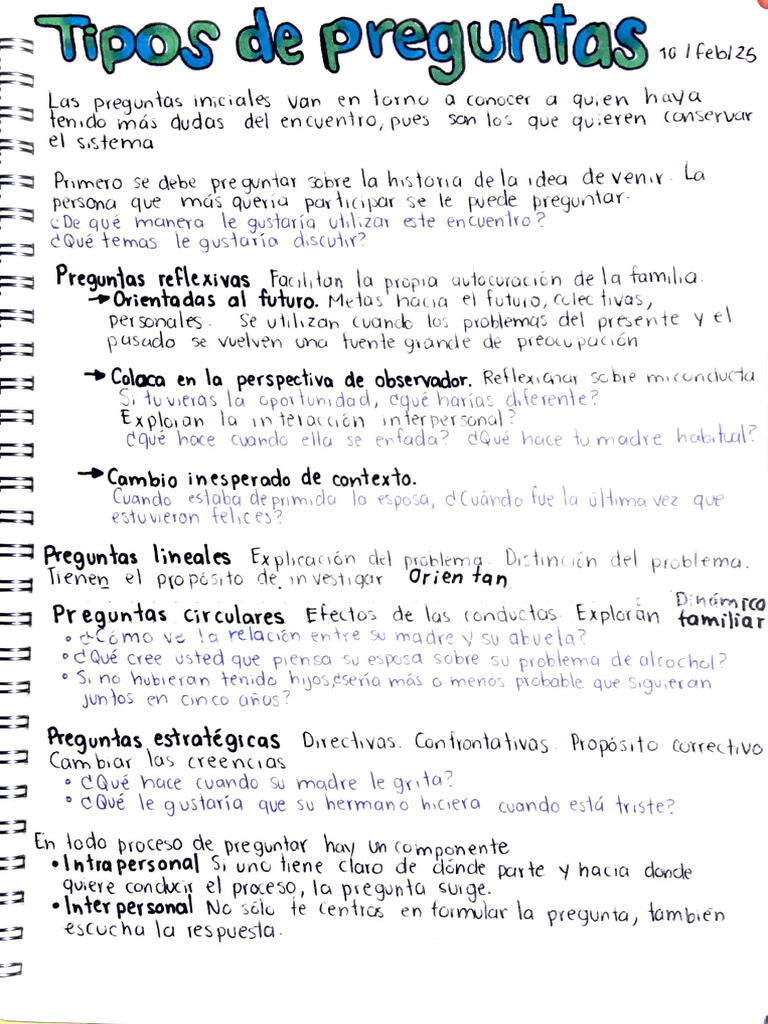 Tipos de preguntas 10/feb/25
Las preguntas iniciales van en torno a conocer a quien haya
tenido más dudas del encuentro, pues son los que quieren conservar
el sistema
Primero se debe preguntar sobre la historia de la idea de venir. La
persona que más quería participar se le puede preguntar.
¿De qué manera le gustaría utilizar este encuentro?
¿Qué temas le gustaría discutir?
Preguntas reflexivas Facilitan la propia autocuración de la familia.
→ Orientadas al futuro. Metas hacia el futuro, colectivas,
personales. Se utilizan cuando los problemas del presente y el
pasado se vuelven una fuente grande de preocupación
→ Coloca en la perspectiva de observador. Reflexionar sobre mi conducta
Si tuvieras la oportunidad, ¿qué harías diferente?
Exploran la interacción interpersonal?
¿Qué hace cuando ella se enfada? ¿Qué hace tu madre habitual?
→ Cambio inesperado de contexto.
Cuando estaba deprimida la esposa, ¿Cuándo fue la última vez que
estuvieron felices?
Preguntas lineales Explicación del problema. Distinción del problema.
Tienen el propósito de investigar Orientan
Preguntas circulares Efectos de las conductas. Explorán Dinámica
familiar
• ¿Cómo ve la relación entre su madre y su abuela?
• ¿Qué cree usted que piensa su esposa sobre su problema de alcochol?
• Si no hubieran tenido hijos,¿sería más o menos probable que siguieran
juntos en cinco años?
Preguntas estratégicas Directivas. Confrontativas. Propósito correctivo
Cambiar las creencias
• ¿Qué hace cuando su madre le grita?
• ¿Qué le gustaría que su hermano hiciera cuando está triste?
En todo proceso de preguntar hay un componente
• Intrapersonal Si uno tiene claro de dónde parte y hacia donde
quiere conducir el proceso, la pregunta surge.
• Interpersonal No sólo te centras en formular la pregunta, también
escucha la respuesta.